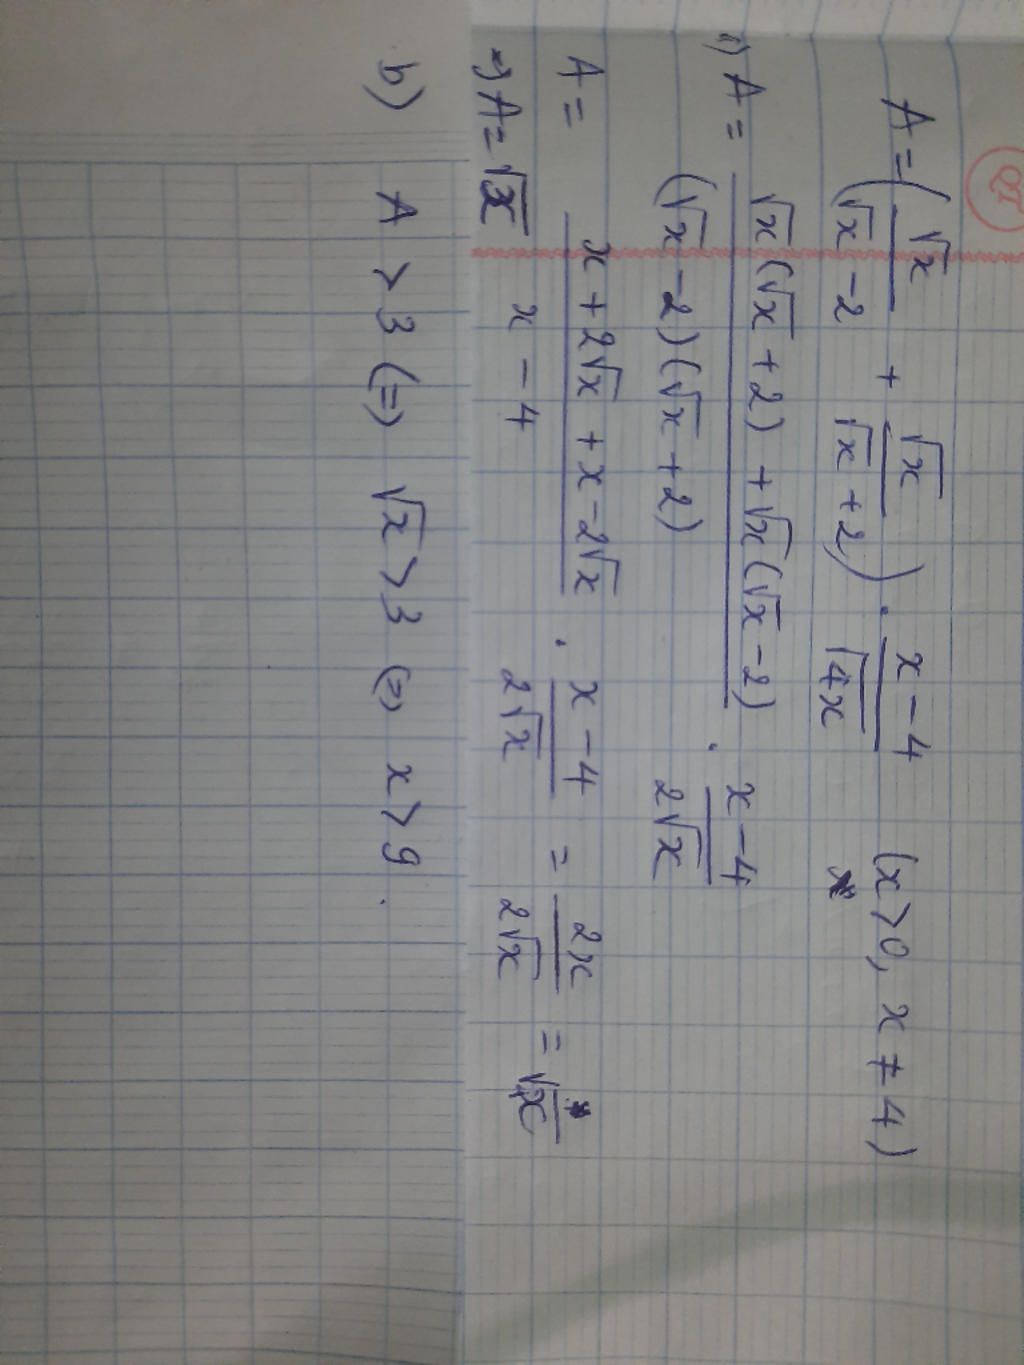 QT
A = (√x/(√x - 2) + √x/(√x + 2)) . (x - 4)/√4x (x > 0, x ≠ 4)
a) A = (√x(√x + 2) + √x(√x - 2))/((√x - 2)(√x + 2)) . (x - 4)/2√x
A = (x + 2√x + x - 2√x)/(x - 4) . (x - 4)/2√x = 2x/2√x = √x
=) A = √x
b) A > 3 (=) √x > 3 (=) x > 9.